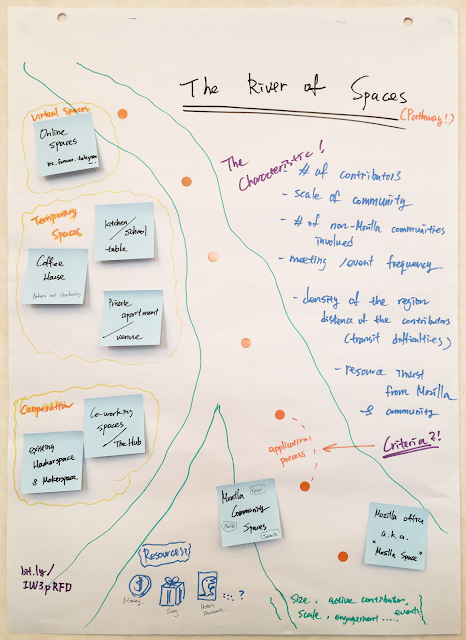 The River of Spaces
(Pathway!)
Virtual Spaces
Online
spaces
Temporary
Spaces
kitchen
/school
table
Coffee
House
Private
apartment
/venue
Cooperation
Co-working
spaces
/The Hub
existing
Hackerspace
& Makerspace
The
Characteristic!
# of contributors
- scale of community
- # of non-Mozilla communities
involved
- meeting /event frequency
- density of the region
distance of the contributors
(transit difficulties)
- resource invest
from Mozilla
& community
application
process
Criteria?!
Mozilla
Community
Spaces
Mozilla office
a.k.a.
"Mozilla Space"
bit.ly/
1W3pRFD
[Resources?]
Money
...?
{ Size, active contributor, }
scale, engagement..... events